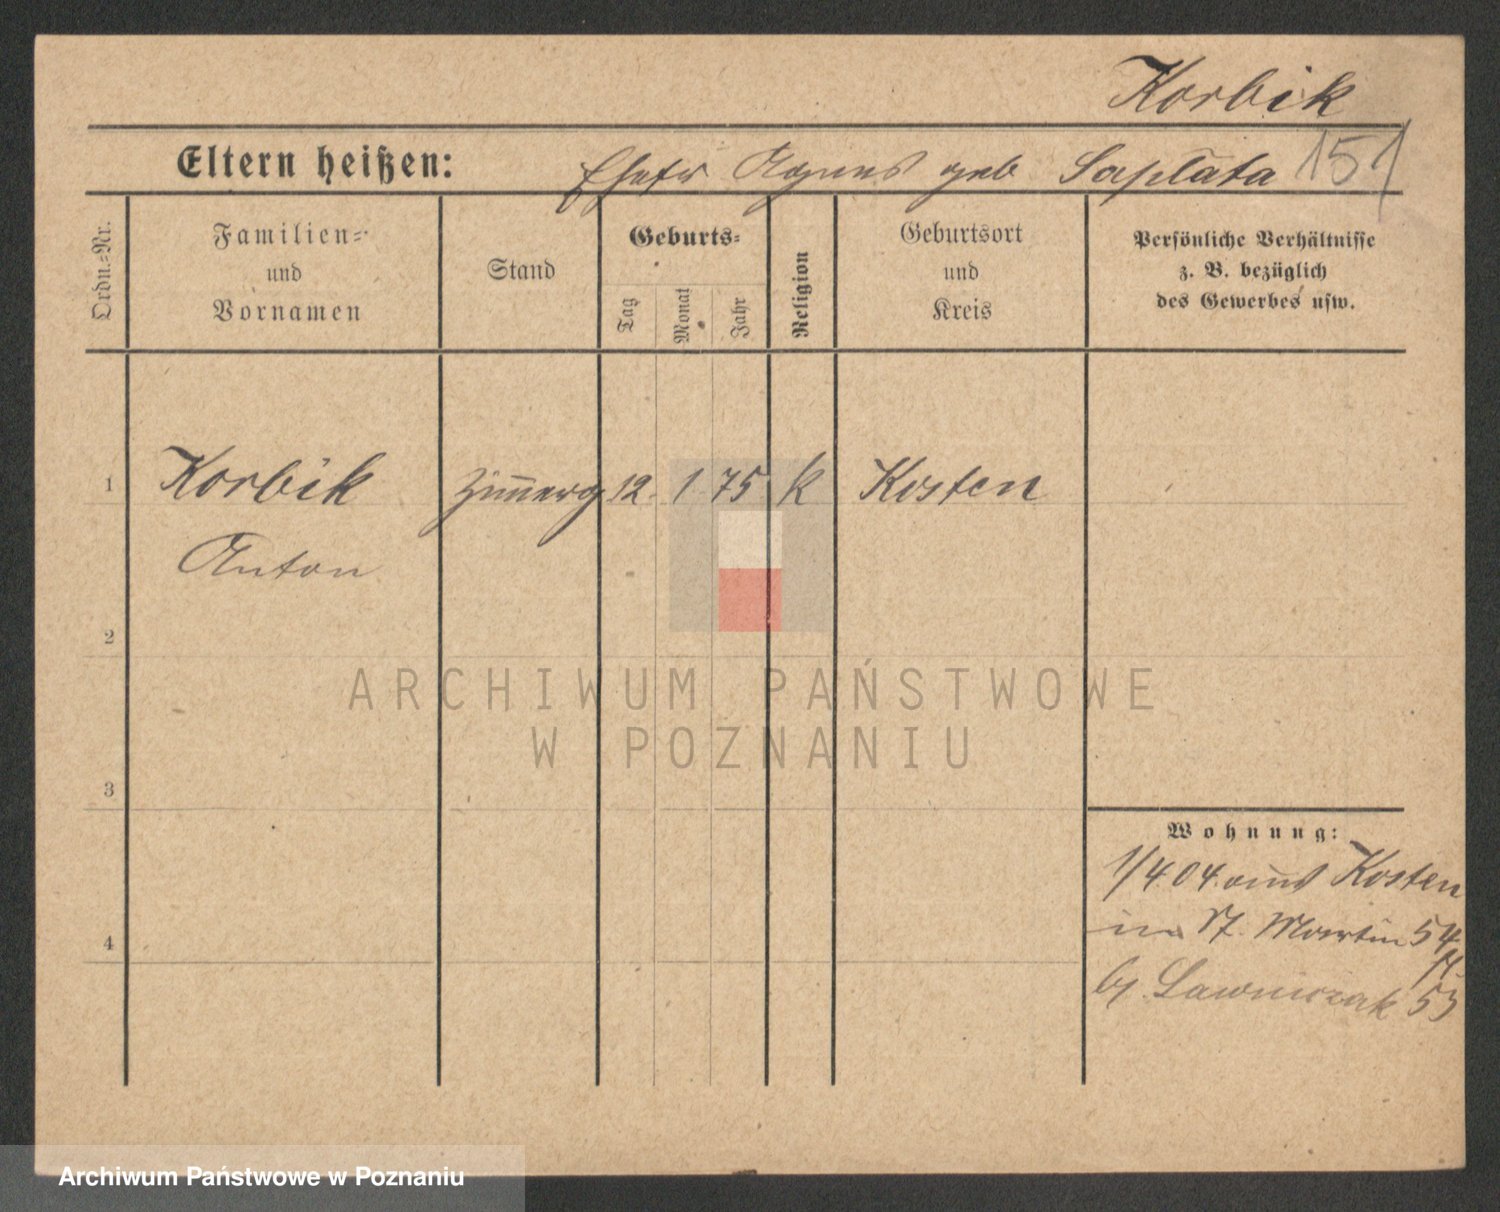 Korbik
Eltern heißen: Ehefr Agnes geb Saplata 151
Ordn.-Nr.
Familien- und Vornamen
Stand
Geburts-
Tag
Monat
Jahr
Religion
Geburtsort und Kreis
Persönliche Verhältnisse
z. B. bezüglich
des Gewerbes usw.
1 Korbik 12. 1 75 k Kosten
Anton
2
ARCHIWUM PAŃSTWOWE
W POZNANIU
3
Wohnung:
1/4 04 aus Kosten
in St. Martin 54
4
by Lawniczak 53
Archiwum Państwowe w Poznaniu